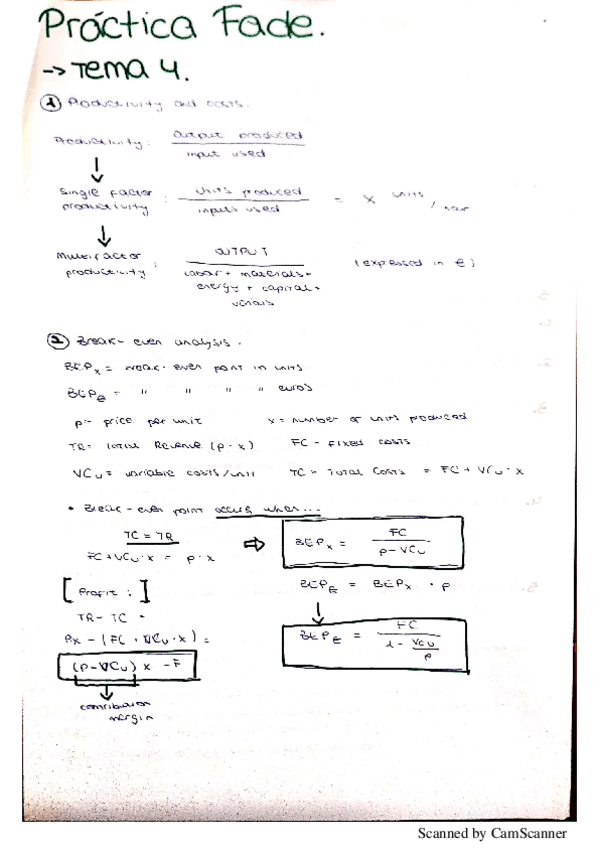 Práctica Fade.
→ Tema 4.
① Productivity and costs.
Productivity: Output produced / input used
↓
Single Factor productivity: units produced / inputs used = x units / hour
↓
Multifactor productivity: OUTPUT / Labor + materials + energy + capital + (expressed in €)
② Break-even analysis.
BEPx = break-even point in units
BEP€ = " " " " euros
p = price per unit x = number of units produced
TR = Total Revenue (p · x) FC = Fixed costs
VCu = variable costs/unit TC = Total Costs = FC + VCu · x
• Break-even point occurs when...
TC = TR
FC + VCu · x = p · x ⇒ BEPx = FC / p - VCu
[Profit:] BEP€ = BEPx · p
TR - TC =
Px - (FC + VCu · x) = ↓
(P - VCu) x - F BEP€ = FC / 1 - VCu/p
↓
contribution
margin
Scanned by CamScanner